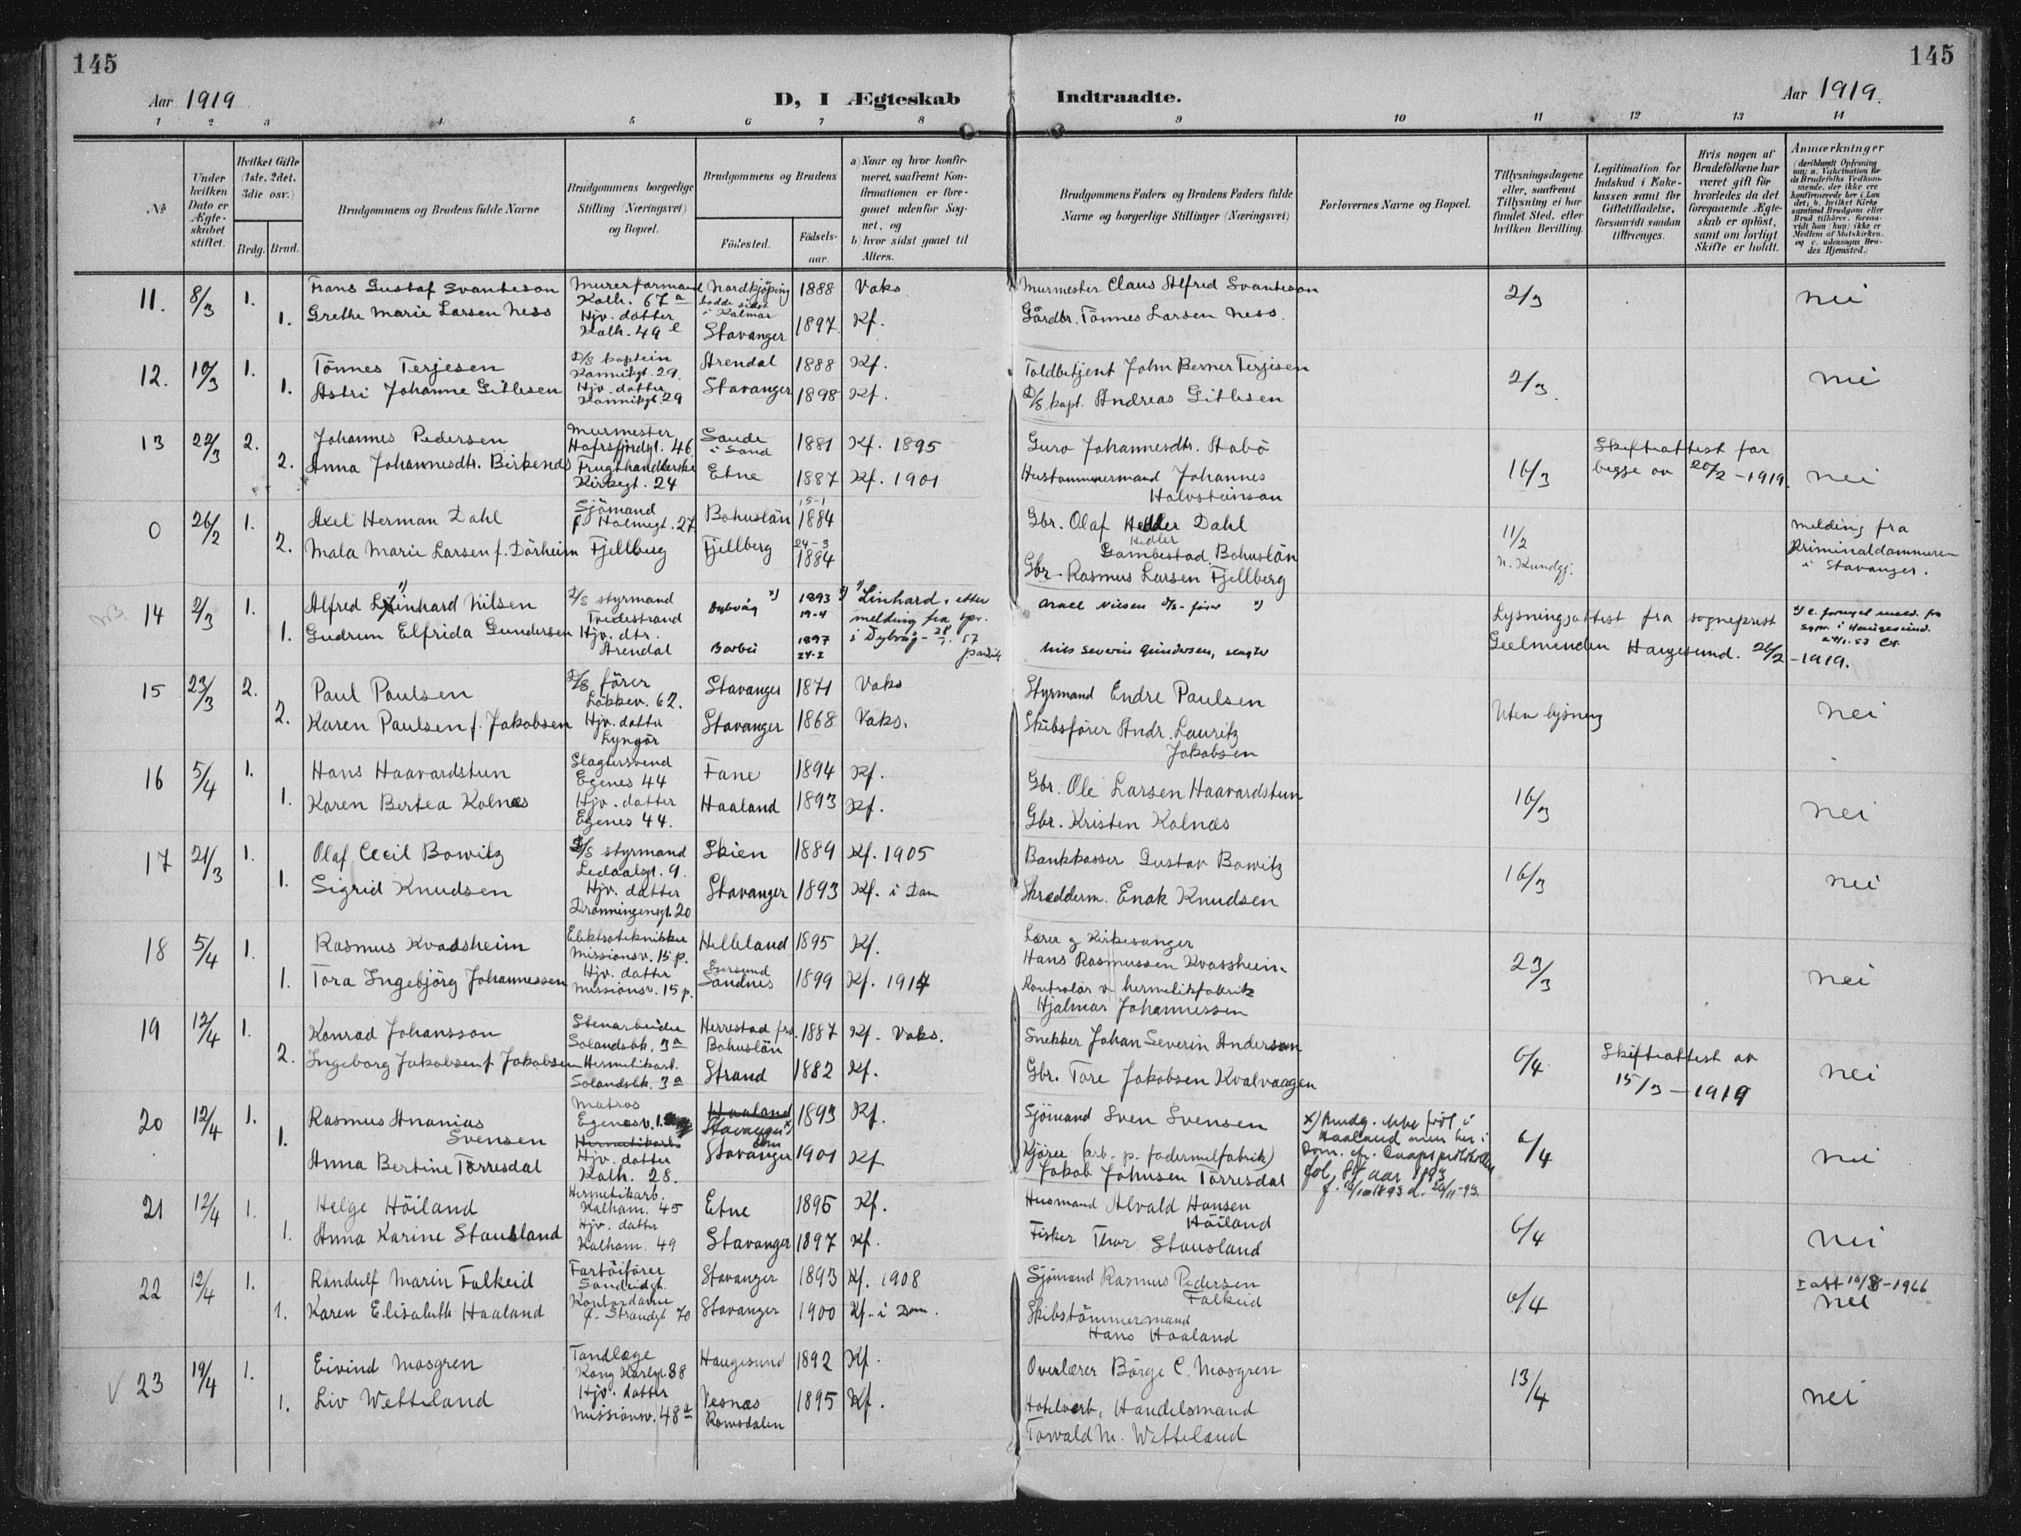 145
145
Aar 1919
D, I Ægteskab
Indtraadte.
Aar 1919.
1 2 3 4 5 6 7 8 9 10 11 12 13 14
No
Under hvilken Dato er Ægteskabet stiftet.
Hvilket Gifte (1ste, 2det, 3die osv.)
Brdg. Brud.
Brudgommens og Brudens fulde Navne
Brudgommens borgerlige Stilling (Næringsvei) og Bopæl.
Brudgommens og Brudens
Fødested.
Fødselsaar.
a) Naar og hvor konfirmeret, saafremt Konfirmationen er foregaaet udenfor Sognet, og
b) hvor sidst gaaet til Alters.
Brudgommens Faders og Brudens Faders fulde Navne og borgerlige Stillinger (Næringsvei)
Forlovernes Navne og Bopæl.
Tillysningsdagene eller, saafremt Tillysning ei har fundet Sted, efter hvilken Bevilling.
Legitimation for Indskud i Enkekassen samt for Giftetilladelse, forsaavidt saadan tiltrænges.
Hvis nogen af Brudefolkene har været gift før hvorledes da det foregaaende Ægteskab er opløst, samt om lovligt Skifte er holdt.
Anmærkninger
11. 8/3 1. Frans Gustaf Svanteson Murerformand Nordkjöping 1888 Vaks. Murmester Claus Alfred Svanteson 2/3 nei
Kalh. 67a bodde sidst i Kalmar
1. Grethe Marie Larsen Ness Hjv. datter Kalh. 49 Stavanger 1897 Kf. Gårdbr. Tönnes Larsen Ness.
12. 10/3 1. Tönnes Terjesen D/S kaptein Arendal 1888 Kf. Toldbetjent John Berner Terjesen 2/3 nei
Kannikgt. 29.
1. Astri Johanne Gitlesen Hjv. datter Kannikgt. 29 Stavanger 1898 Kf. D/S kapt. Andreas Gitlesen
13 22/3 2. Johannes Pedersen Murmester Sande i Sand 1881 Kf. 1895 Guro Johannesdtr. Stabö 16/3 Skifteattest for begge av 20/2-1919. nei
Hafrsfjordgt. 46
2. Anna Johannesdtr. Birkenes Frugthandlerske Kirkegt. 24 Etne 1887 Kf. 1901 Hustømmermand Johannes Halvsteinson
0 26/2 1. Axel Herman Dahl Sjömand Holmegt. 27 Bohuslän 15-1 1884 Gbr. Olaf Hedler Dahl 11/2 Melding fra Kriminaldommeren i Stavanger.
Hedler
Gambestad. Bohuslän n. Kundgj.
2. Mala Marie Larsen f. Dörheim Fjellberg Fjellberg 24-3 1884 Gbr. Rasmus Larsen Fjellberg
14 2/3 1. Alfred Leinhard Nilsen D/S styrmand Tvedestrand Dybvåg 1893 19-4 Linhard, etter melding fra spr. i Dybvåg Nilsen D/S fører Lysningsattest fra sogneprest
1. Gudrun Elfrida Gundersen Hjv. dtr. Arendal Barbu 1897 24-2 Nils Severin Gundersen, Geelmuyden Haugesund. 26/2-1919.
15 23/3 2. Paul Paulsen D/S förer Lökkev. 62. Stavanger 1871 Vaks Styrmand Endre Paulsen Uten lysning nei
2. Karen Paulsen f. Jakobsen Hjv. datter Lyngör Stavanger 1868 Vaks. Skibsförer Andr. Lauritz Jakobsen
16 5/4 1. Hans Haavardstun Slagtersvend Egenes 44 Fane 1894 Kf. Gbr. Ole Larsen Haavardstun 16/3 nei
1. Karen Bertea Kolnes Hjv. datter Egenes 44. Haaland 1893 Kf. Gbr. Kristen Kolnæs
17 21/3 1. Olaf Cecil Bowitz D/S styrmand Ledaalsgt. 9. Skien 1889 Kf. 1905 Bankkasser Gustav Bowitz 16/3 nei
1. Sigrid Knudsen Hjv. datter Dronningensgt. 20 Stavanger 1893 Kf. i Dom Skrædderm. Enok Knudsen
18 5/4 1. Rasmus Kvadsheim Elektrotekniker Missionsv. 15 p. Helleland 1895 Kf. Lærer og Kirkesanger Hans Rasmussen Kvassheim. 23/3 nei
1. Tora Ingebjörg Johannessen Hjv. datter Missionsv. 15 p. Egersund Sandnes 1899 Kf. 1914 Kontrolör v. hermetikfabrik Hjalmar Johannessen
19 12/4 1. Konrad Johansson Stenarbeider Solandsbk. 3a Herrestad prs. Bohuslän 1887 Kf. Vaks. Snekker Johan Severin Anderson 6/4 Skifteattest av 15/3-1919 nei
2. Ingeborg Jakobsen f. Jakobsen Hermetikarb. Solandsbk. 3a Strand 1882 Kf. Gbr. Tore Jakobsen Kvalvaagen
20 12/4 1. Rasmus Ananias Svensen Matros Egenesv. 1. Haaland Stavanger x) Dom 1893 Kf. Sjömand Sven Svensen x) Brudg. ikke född i Haaland men her i Dom. cfr. 6/4 nei
1. Anna Bertine Törresdal Hermetikarb. Hjv. datter Kalh. 28. Stavanger 1901 Kf Kjörer (arb. p. fodermelfabrik) Jakob Johnsen Törresdal fol. 87 aar 1893
21 12/4 1. Helge Höiland Hermetikarb. Kalham. 45 Etne 1895 Kf. Husmand Alvald Hansen Höiland 6/4 nei
1. Anna Karine Stausland Hjv. datter Kalham. 49 Stavanger 1897 Kf. Fisker Thor Stausland
22 12/4 1. Randulf Marin Falkeid Fartöiförer Sandeidgt. Stavanger 1893 Kf. 1908 Sjömand Rasmus Pedersen Falkeid 6/4 1 att 10/8-1966 nei
1. Karen Elisabeth Haaland Kontordame Ö. Strandgt 70 Stavanger 1900 Kf. i Dom. Skibstömmermand Hans Haaland
23 19/4 1. Eivind Mosgren Tandlæge Kong Karlsgt. 38 Haugesund 1892 Kf. Overlærer Börge C. Mosgren 13/4 nei
1. Liv Wetteland Hjv. datter Missionsv. 48a Vesnæs Romsdalen 1895 Kf. Hotelverb, Handelsmand Torvald M. Wetteland